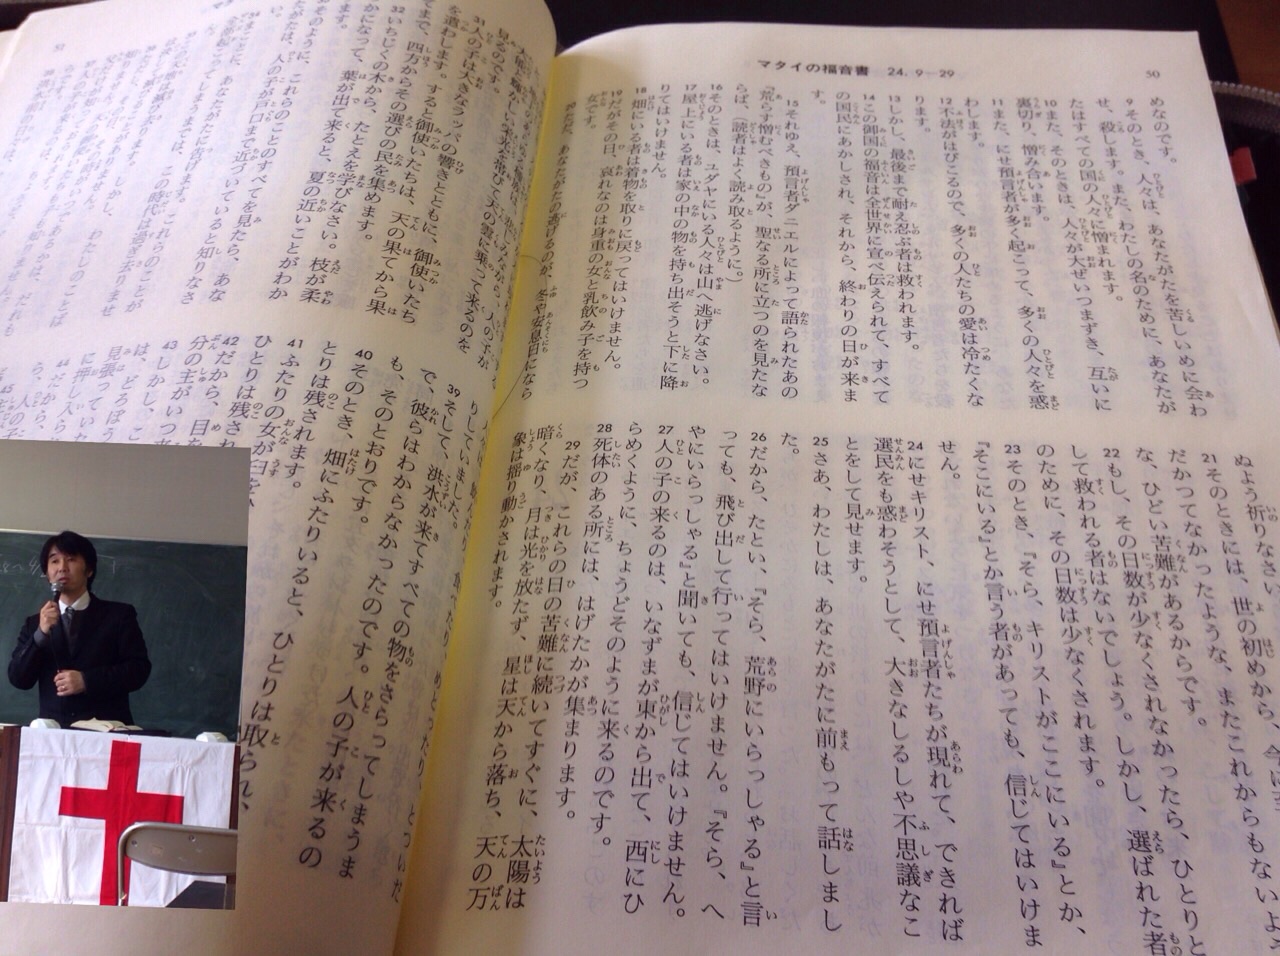 50
マタイの福音書　24. 9―29
めなのです。
9そのとき、人々は、あなたがたを苦しいめに会わ
せ、殺します。また、わたしの名のために、あなたが
たはすべての国の人々に憎まれます。
10また、そのときは、人々が大ぜいつまずき、互いに
裏切り、憎み合います。
11また、にせ預言者が多く起こって、多くの人々を惑
わします。
12不法がはびこるので、多くの人たちの愛は冷たくな
ります。
13しかし、最後まで耐え忍ぶ者は救われます。
14この御国の福音は全世界に宣べ伝えられて、すべて
の国民にあかしされ、それから、終わりの日が来ま
す。
15それゆえ、預言者ダニエルによって語られたあの
『荒らす憎むべきもの』が、聖なる所に立つのを見たな
らば、（読者はよく読み取るように。）
16そのときは、ユダヤにいる人々は山へ逃げなさい。
17屋上にいる者は家の中の物を持ち出そうと下に降
りてはいけません。
18畑にいる者は着物を取りに戻ってはいけません。
19だがその日、哀れなのは身重の女と乳飲み子を持つ
女です。
20ただ、あなたがたの逃げるのが、冬や安息日になら
ぬよう祈りなさい。
21そのときには、世の初めから、今に
だかつてなかったような、またこれからもないよう
な、ひどい苦難があるからです。
22もし、その日数が少なくされなかったら、ひとりと
して救われる者はないでしょう。しかし、選ばれた者
のために、その日数は少なくされます。
23そのとき、『そら、キリストがここにいる』とか、
『そこにいる』とか言う者があっても、信じてはいけま
せん。
24にせキリスト、にせ預言者たちが現れて、できれば
選民をも惑わそうとして、大きなしるしや不思議なこ
とをして見せます。
25さあ、わたしは、あなたがたに前もって話しまし
た。
26だから、たとい、『そら、荒野にいらっしゃる』と言
っても、飛び出して行ってはいけません。『そら、へ
やにいらっしゃる』と聞いても、信じてはいけません。
27人の子の来るのは、いなずまが東から出て、西にひ
らめくように、ちょうどそのように来るのです。
28死体のある所には、はげたかが集まります。
29だが、これらの日の苦難に続いてすぐに、太陽は
暗くなり、月は光を放たず、星は天から落ち、天の万
象は揺り動かされます。
51
見るのです。
31人の子は大きなラッパの響きとともに、御使いたち
を遣わします。すると御使いたちは、天の果てから果
てまで、四方からその選びの民を集めます。
32いちじくの木から、たとえを学びなさい。枝が柔
かになって、葉が出て来ると、夏の近いことがわか
ります。
そのように、これらのことのすべてを見たら、あな
たがたは、人の子が戸口まで近づいていると知りなさ
い。
39そして、洪水が来てすべての物をさらってしまうま
で、彼らはわからなかったのです。人の子が来るの
も、そのとおりです。
40そのとき、畑にふたりいると、ひとりは取られ、
ひとりは残されます。
41ふたりの女が臼を
ひとりは残され
42だから、目を
分の主がいつ
43しかし、こ
は、どろぼう
見張ってい
に押し入ら
44だから、
ら、人の